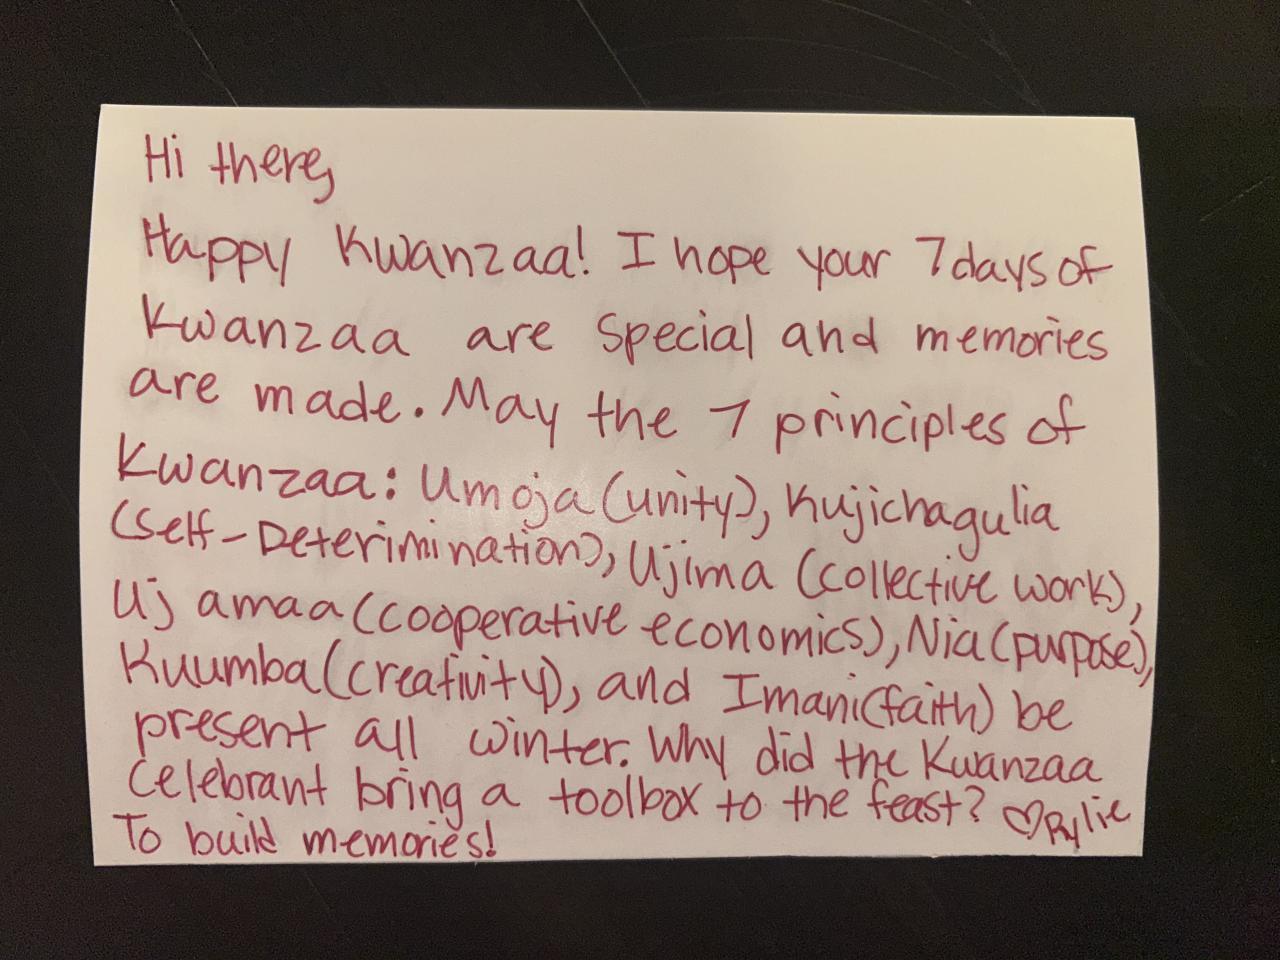 Hi there,
Happy Kwanzaa! I hope your 7 days of
Kwanzaa are special and memories
are made. May the 7 principles of
Kwanzaa: Umoja (unity), Kujichagulia
(Self-Deterimination), Ujima (collective work),
Ujamaa (cooperative economics), Nia (purpose),
Kuumba (creativity), and Imani (faith) be
present all winter. Why did the Kwanzaa
celebrant bring a toolbox to the feast? ♡Rylie
To build memories!